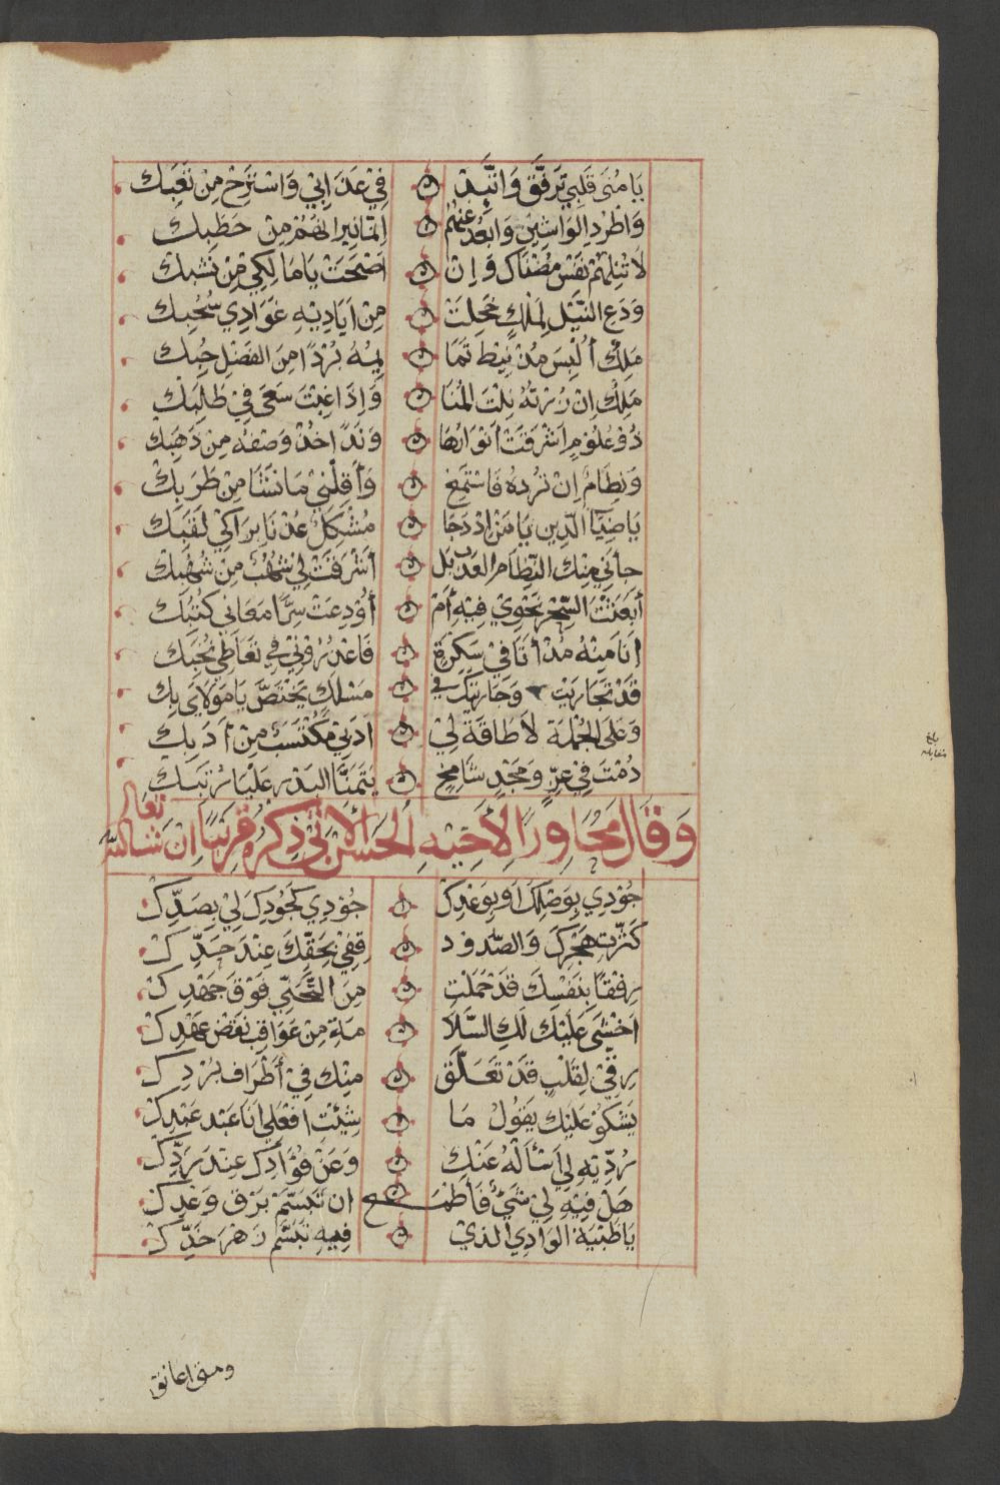 يَا مُنَى قَلْبِي تَرَفَّقْ وَاتَّئِدْ فِي عَذَابِي وَاسْتَرِحْ مِنْ تَعَبِكْ
وَاطْرُدِ الوَاشِينَ وَابْعُدْ عَنْهُمُ إِنَّمَا نِيرَانُهُمْ مِنْ حَطَبِكْ
لَا تُنِلْهُمْ نَفْسَ مُضْنَاكَ وَإِنْ أَصْبَحَتْ يَا مَالِكِي مِنْ نَشَبِكْ
وَدَعِ النَّيْلَ لِمَلْكٍ خَجِلَتْ مِنْ أَيَادِيْهِ غَوَادِي سُحُبِكْ
مَلِكٌ أُلْبِسَ مُذْ نِيْطَ تَمَا ئِمُهُ بُرْدًا مِنَ الفَضْلِ حُبِكْ
مَلِكٌ إِنْ زُرْتَهُ نِلْتَ المُنَا وَإِذَا غِبْتَ سَعَى فِي طَلَبِكْ
ذُو عُلُوْمٍ أَشْرَقَتْ أَنْوَارُهَا وَنَدًا خُذْ وَصْفَهُ مِنْ ذَهَبِكْ
وَنِظَامٌ إِنْ تُرِدْهُ فَاسْتَمِعْ وَأَقِلْنِي مَا تَشَا مِنْ طَرَبِكْ
يَا ضِيَآءَ الدِّينِ يَا مَنْ إِذْ دَجَا مُشْكِلٌ عُذْنَا بِرَاكِي لَقَبِكْ
جَاءَنِي مِنْكَ النِّظَامُ العَذْبُ بَلْ أَشْرَقَتْ لِي شُهُبٌ مِنْ شُهُبِكْ
أَبَعَثْتَ السِّحْرَ تَحْوِي فِيْهِ أَمْ أُوْدِعَتْ سِرًّا مَعَانِي كُتُبِكْ
أَنَا مِنْهُ مُذْ أَتَا فِي سَكْرَةٍ فَاعْذُرُوْنِي فِي تَعَاطِي نُخَبِكْ
قَدْ تَجَارَيْتُ وَجَارَيْتُكَ فِي مَسْلَكٍ يَخْتَصُّ يَا مَوْلَايَ بِكْ
وَعَلَى الجُمْلَةِ لَا طَاقَةَ لِيْ أَدَبِي مُكْتَسَبٌ مِنْ أَدَبِكْ
دُمْتَ فِي عِزٍّ وَمَجْدٍ شَامِخٍ يَتَمَنَّا البَدْرُ عَلْيَا رُتَبِكْ
وَقَالَ مُجَاوِرًا لِأَخِيْهِ الحَسَنِ الآتِي ذِكْرُهُ قَرِيْبًا إِنْ شَاءَ اللّٰهُ تعالى
جُوْدِي بِوَصْلِكِ أَوْ بِوَعْدِكْ جُوْدِي كَجُوْدِكِ لِي بِصَدِّكْ
كَثَّرْتِ هَجْرَكِ وَالصُّدُودَ قِفِي بِحَقِّكَ عِنْدَ حَدِّكْ
رِفْقًا بِنَفْسِكَ قَدْ حَمَلْتِ مِنَ التَّجَنِّي فَوْقَ جَهْدِكْ
أَخْشَى عَلَيْكَ لَكِ السَّلَا مَةِ مِنْ عَوَاقِبِ نَقْضِ عَهْدِكْ
رِقِّي لِقَلْبٍ قَدْ تَعَلَّقَ مِنْكِ فِي أَطْرَافِ بُرْدِكْ
يَشْكُوْ عَلَيْكِ يَقُولُ مَا شِئْتِ افْعَلِي أَنَا عَبْدُ عَبْدِكْ
رُدِّيْهِ لِي أَسْأَلْهُ عَنْكِ وَعَنْ فُؤَادِكِ عِنْدَ رَدِّكْ
هَلْ فِيْهِ لِي شَيْءٌ فَأَطْمَع إِنْ تَبَسَّمَ بَرْقُ وَعْدِكْ
يَا ظَبْيَةَ الوَادِي الَّذِي فِيهِ تَبَسَّمَ زَهْرُ خَدِّكْ
ومتى اعانق